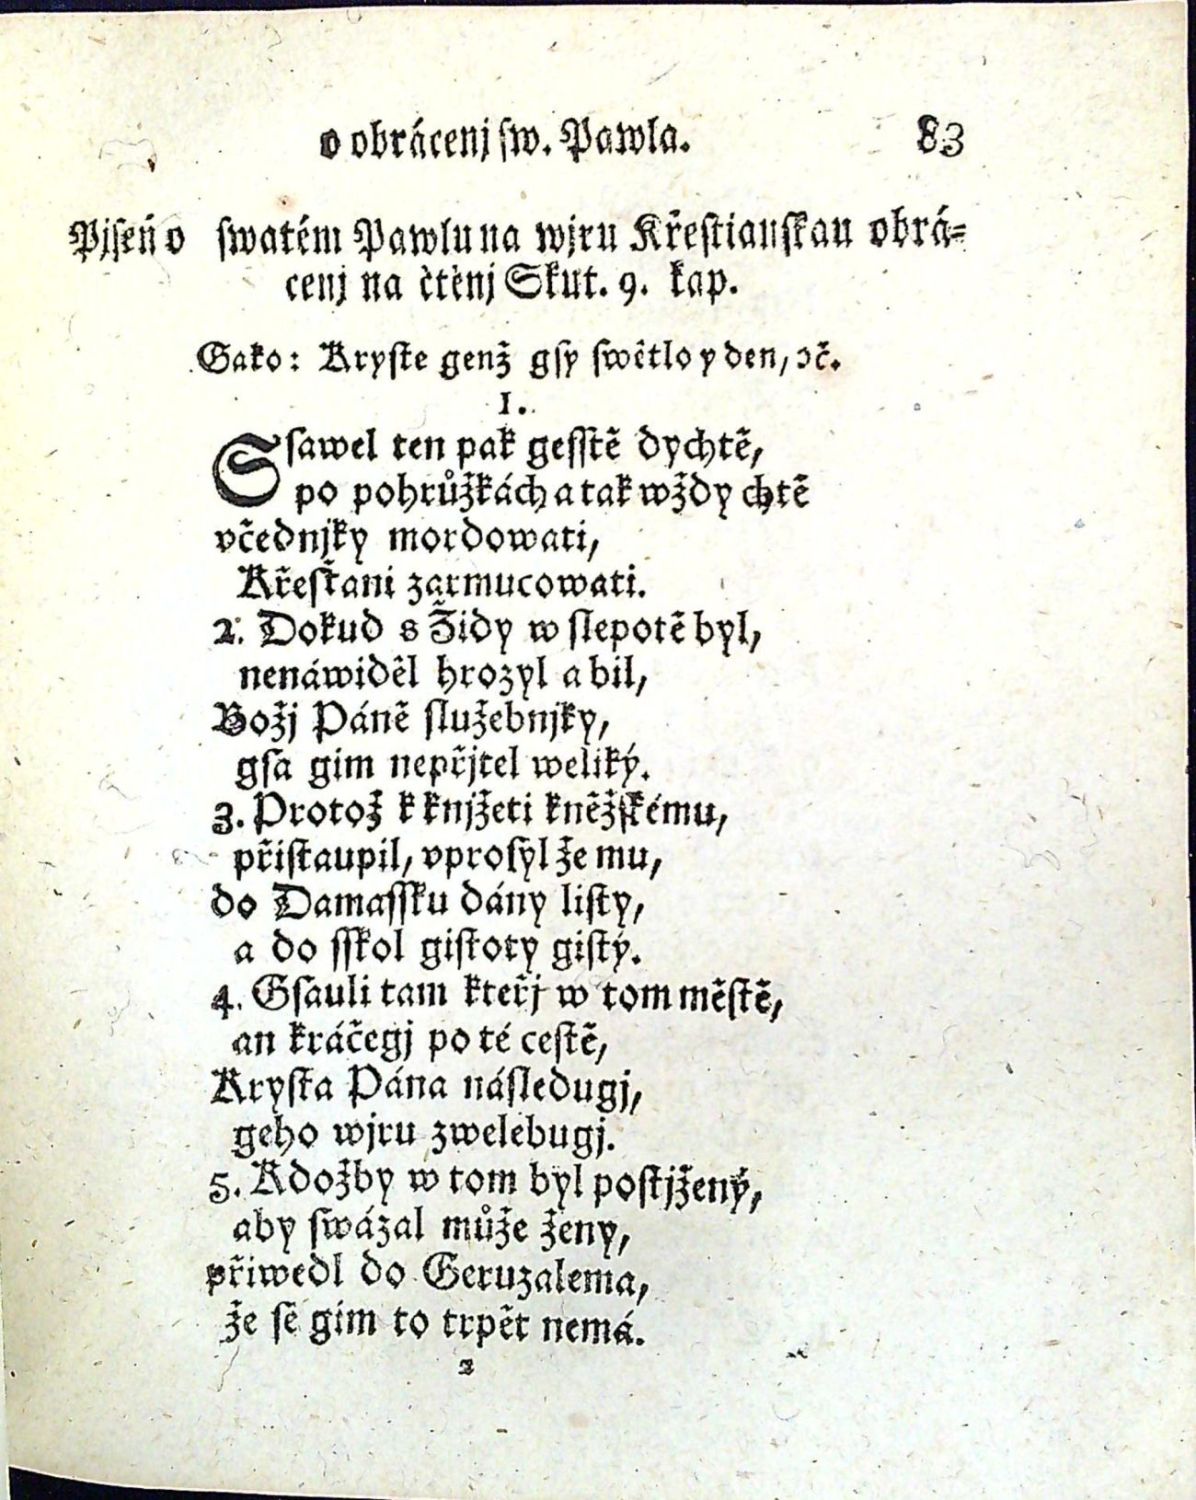 o obrácenj ſw. Pawla. 83
Pjſeń o ſwatém Pawlu na wjru Křeſtianſkau obrá-
cenj na čtěnj Skut. 9. kap.
Gako: Kryſte genž gſy ſwětlo y den, ꝛč.
1.
Sſawel ten pak geſſtě dychtě,
po pohrůžkách a tak wždy chtě
včednjky mordowati,
Křeſťani zarmucowati.
2. Dokud s Židy w ſlepotě byl,
nenáwiděl hrozyl a bil,
Božj Páně ſlužebnjky,
gſa gim nepřjtel weliký.
3. Protož k knjžeti kněžſkému,
přiſtaupil, vproſyl že mu,
do Damaſſku dány liſty,
a do ſſkol giſtoty giſtý.
4. Gſauli tam kteřj w tom měſtě,
an kráčegj po té ceſtě,
Kryſta Pána náſledugj,
geho wjru zwelebugj.
5. Kdožby w tom byl poſtjžený,
aby ſwázal muže ženy,
přiwedl do Geruzalema,
že ſě gim to trpět nemá.
2